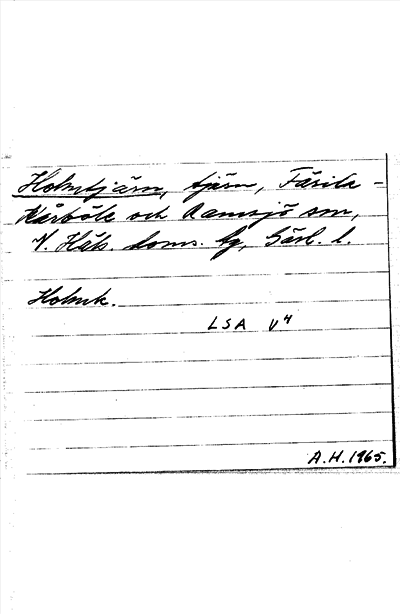 Holmtjärn, tjärn, Färila -
Kårböle och Ramsjö snr,
V. Häls. doms. tg, Gävl. l.
Holmtk.
LSA V4
A.H.1965.